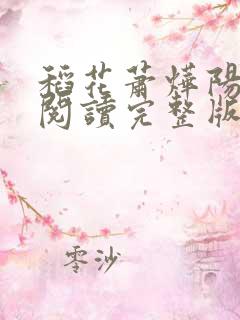 稻花蕭燁陽
閱讀完整版
零沙